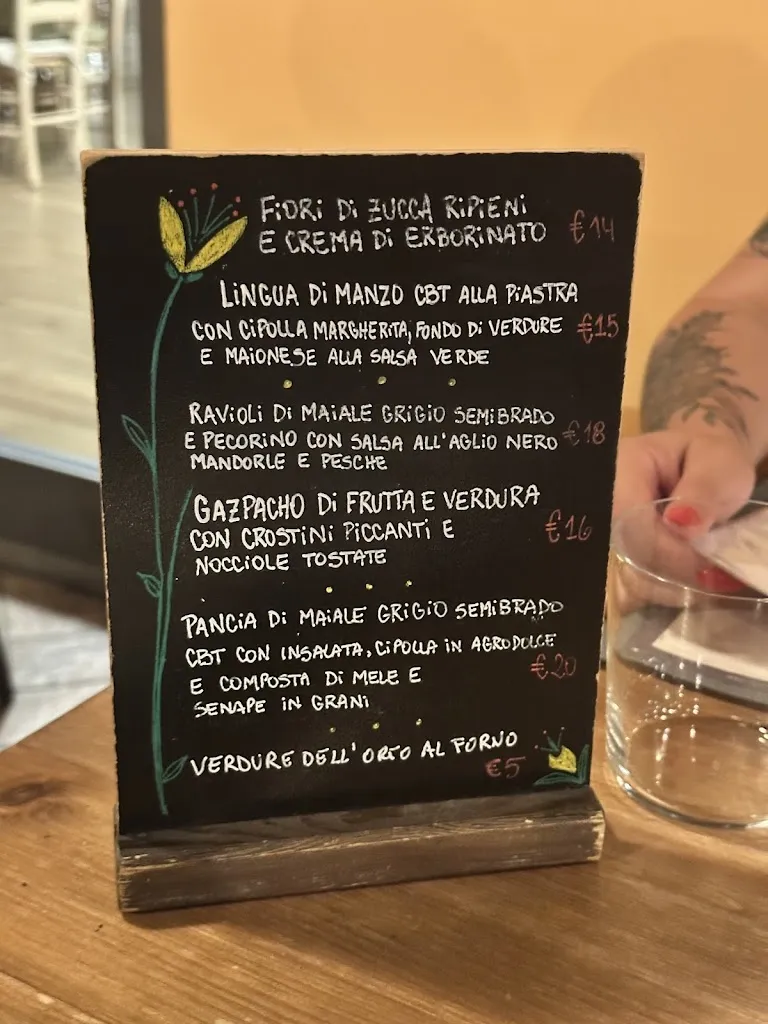 FIORI DI ZUCCA RIPIENI
E CREMA DI ERBORINATO €14
LINGUA DI MANZO CBT ALLA PIASTRA
CON CIPOLLA MARGHERITA, FONDO DI VERDURE €15
E MAIONESE ALLA SALSA VERDE
RAVIOLI DI MAIALE GRIGIO SEMIBRADO
E PECORINO CON SALSA ALL'AGLIO NERO €18
MANDORLE E PESCHE
GAZPACHO DI FRUTTA E VERDURA
CON CROSTINI PICCANTI E €16
NOCCIOLE TOSTATE
PANCIA DI MAIALE GRIGIO SEMIBRADO
CBT CON INSALATA, CIPOLLA IN AGRODOLCE
E COMPOSTA DI MELE E €20
SENAPE IN GRANI
VERDURE DELL'ORTO AL FORNO
€5